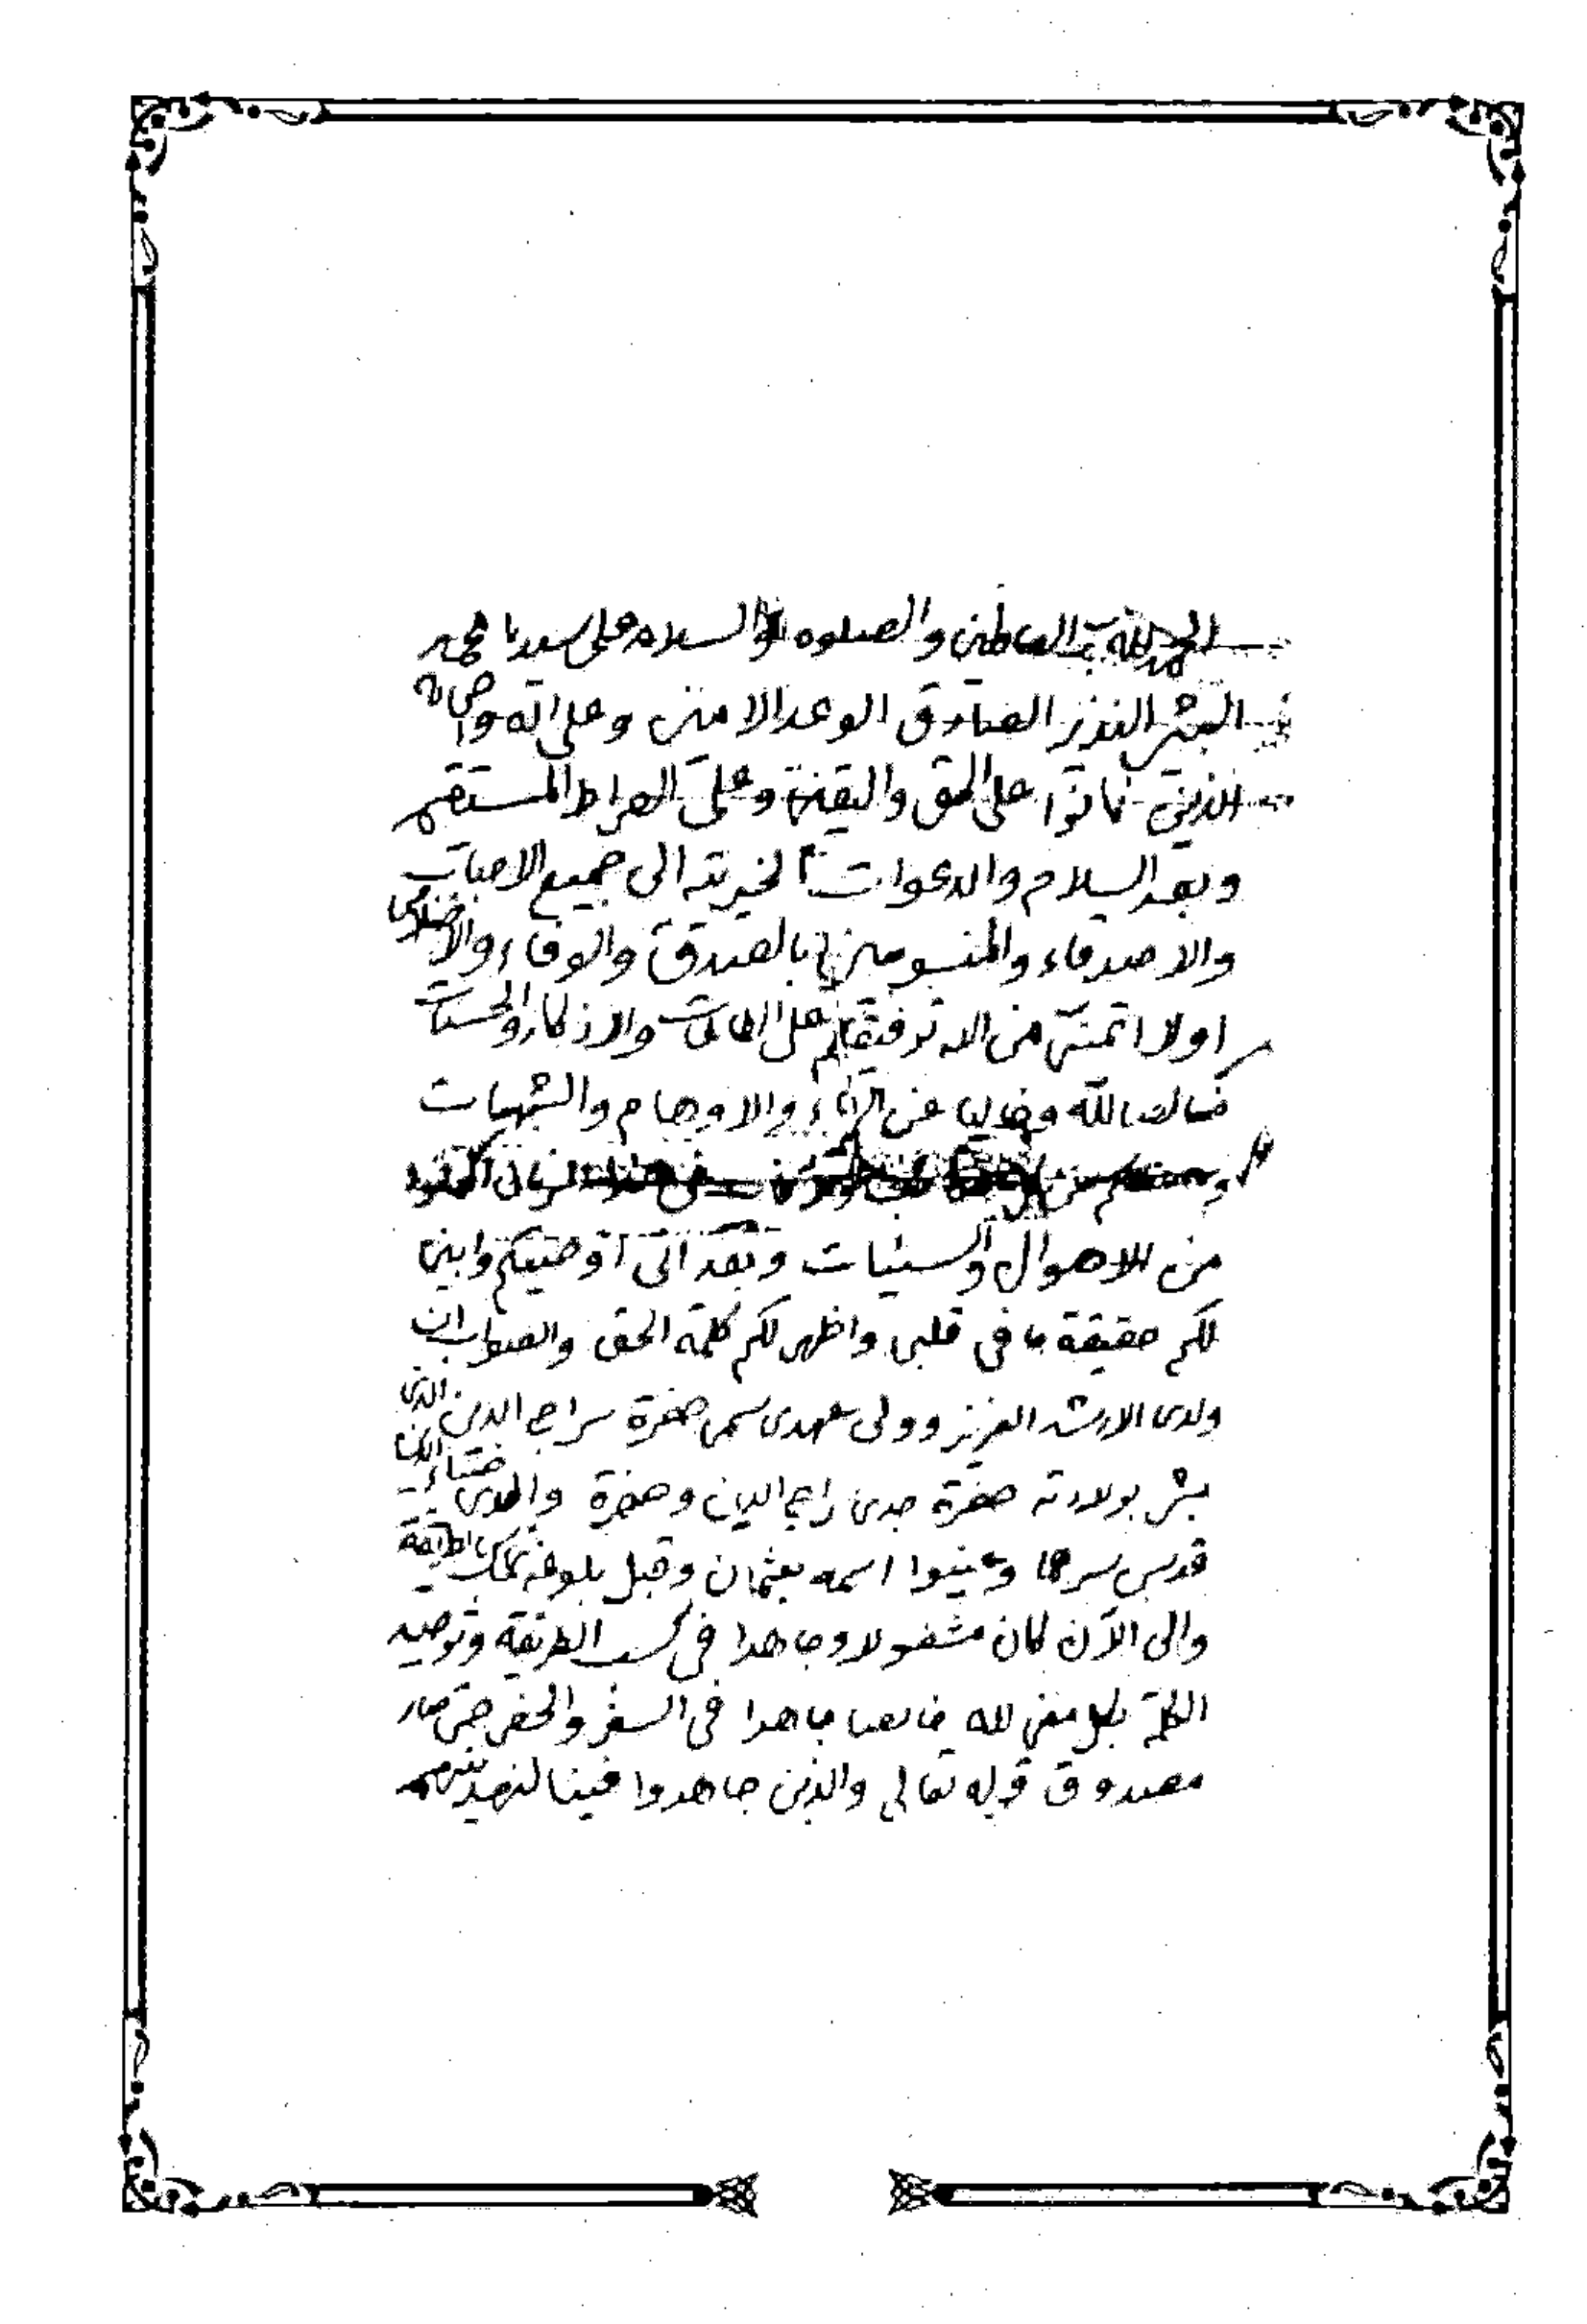 الحمد لله رب العالمين والصلوه والسلام على سيدنا محمد
البشير النذير الصادق الوعد الامين وعلى آله واصحابه
الذين كانوا على الحق واليقين وعلى الصراط المستقيم
وبعد السلام والدعوات الخيرية الى جميع الاحباب
والاصدقاء والمنسوبين بالصدق والوفاء والاخلاص
اولا اتمنى من الله توفيقكم على الطاعات والاذكار والحسنات
خالصا لله وخاليا عن الرياء والاوهام والشبهات
من الاهوال والسيئات وبعد انى اوصيكم وابين
لكم حقيقة ما في قلبى واظهر لكم كلمة الحق والصواب ان
ولدى الارشد العزيز وولى عهدى سمى حضرة سراج الدين الذى
بشر بولادته حضرة جدى الدين وحضرة والدى ضياء الدين
قدس سرهما وعينوا اسمه بعثمان وقبل بلوغه تمسك الطريقة
والى الآن كان مشغولا وجاهدا في كسب الطريقة وتوحيد
الكلمة بكل معنى لله خالصا جاهدا في السفر والحضر حتى صار
مصدوق قوله تعالى والذين جاهدوا فينا لنهدينهم